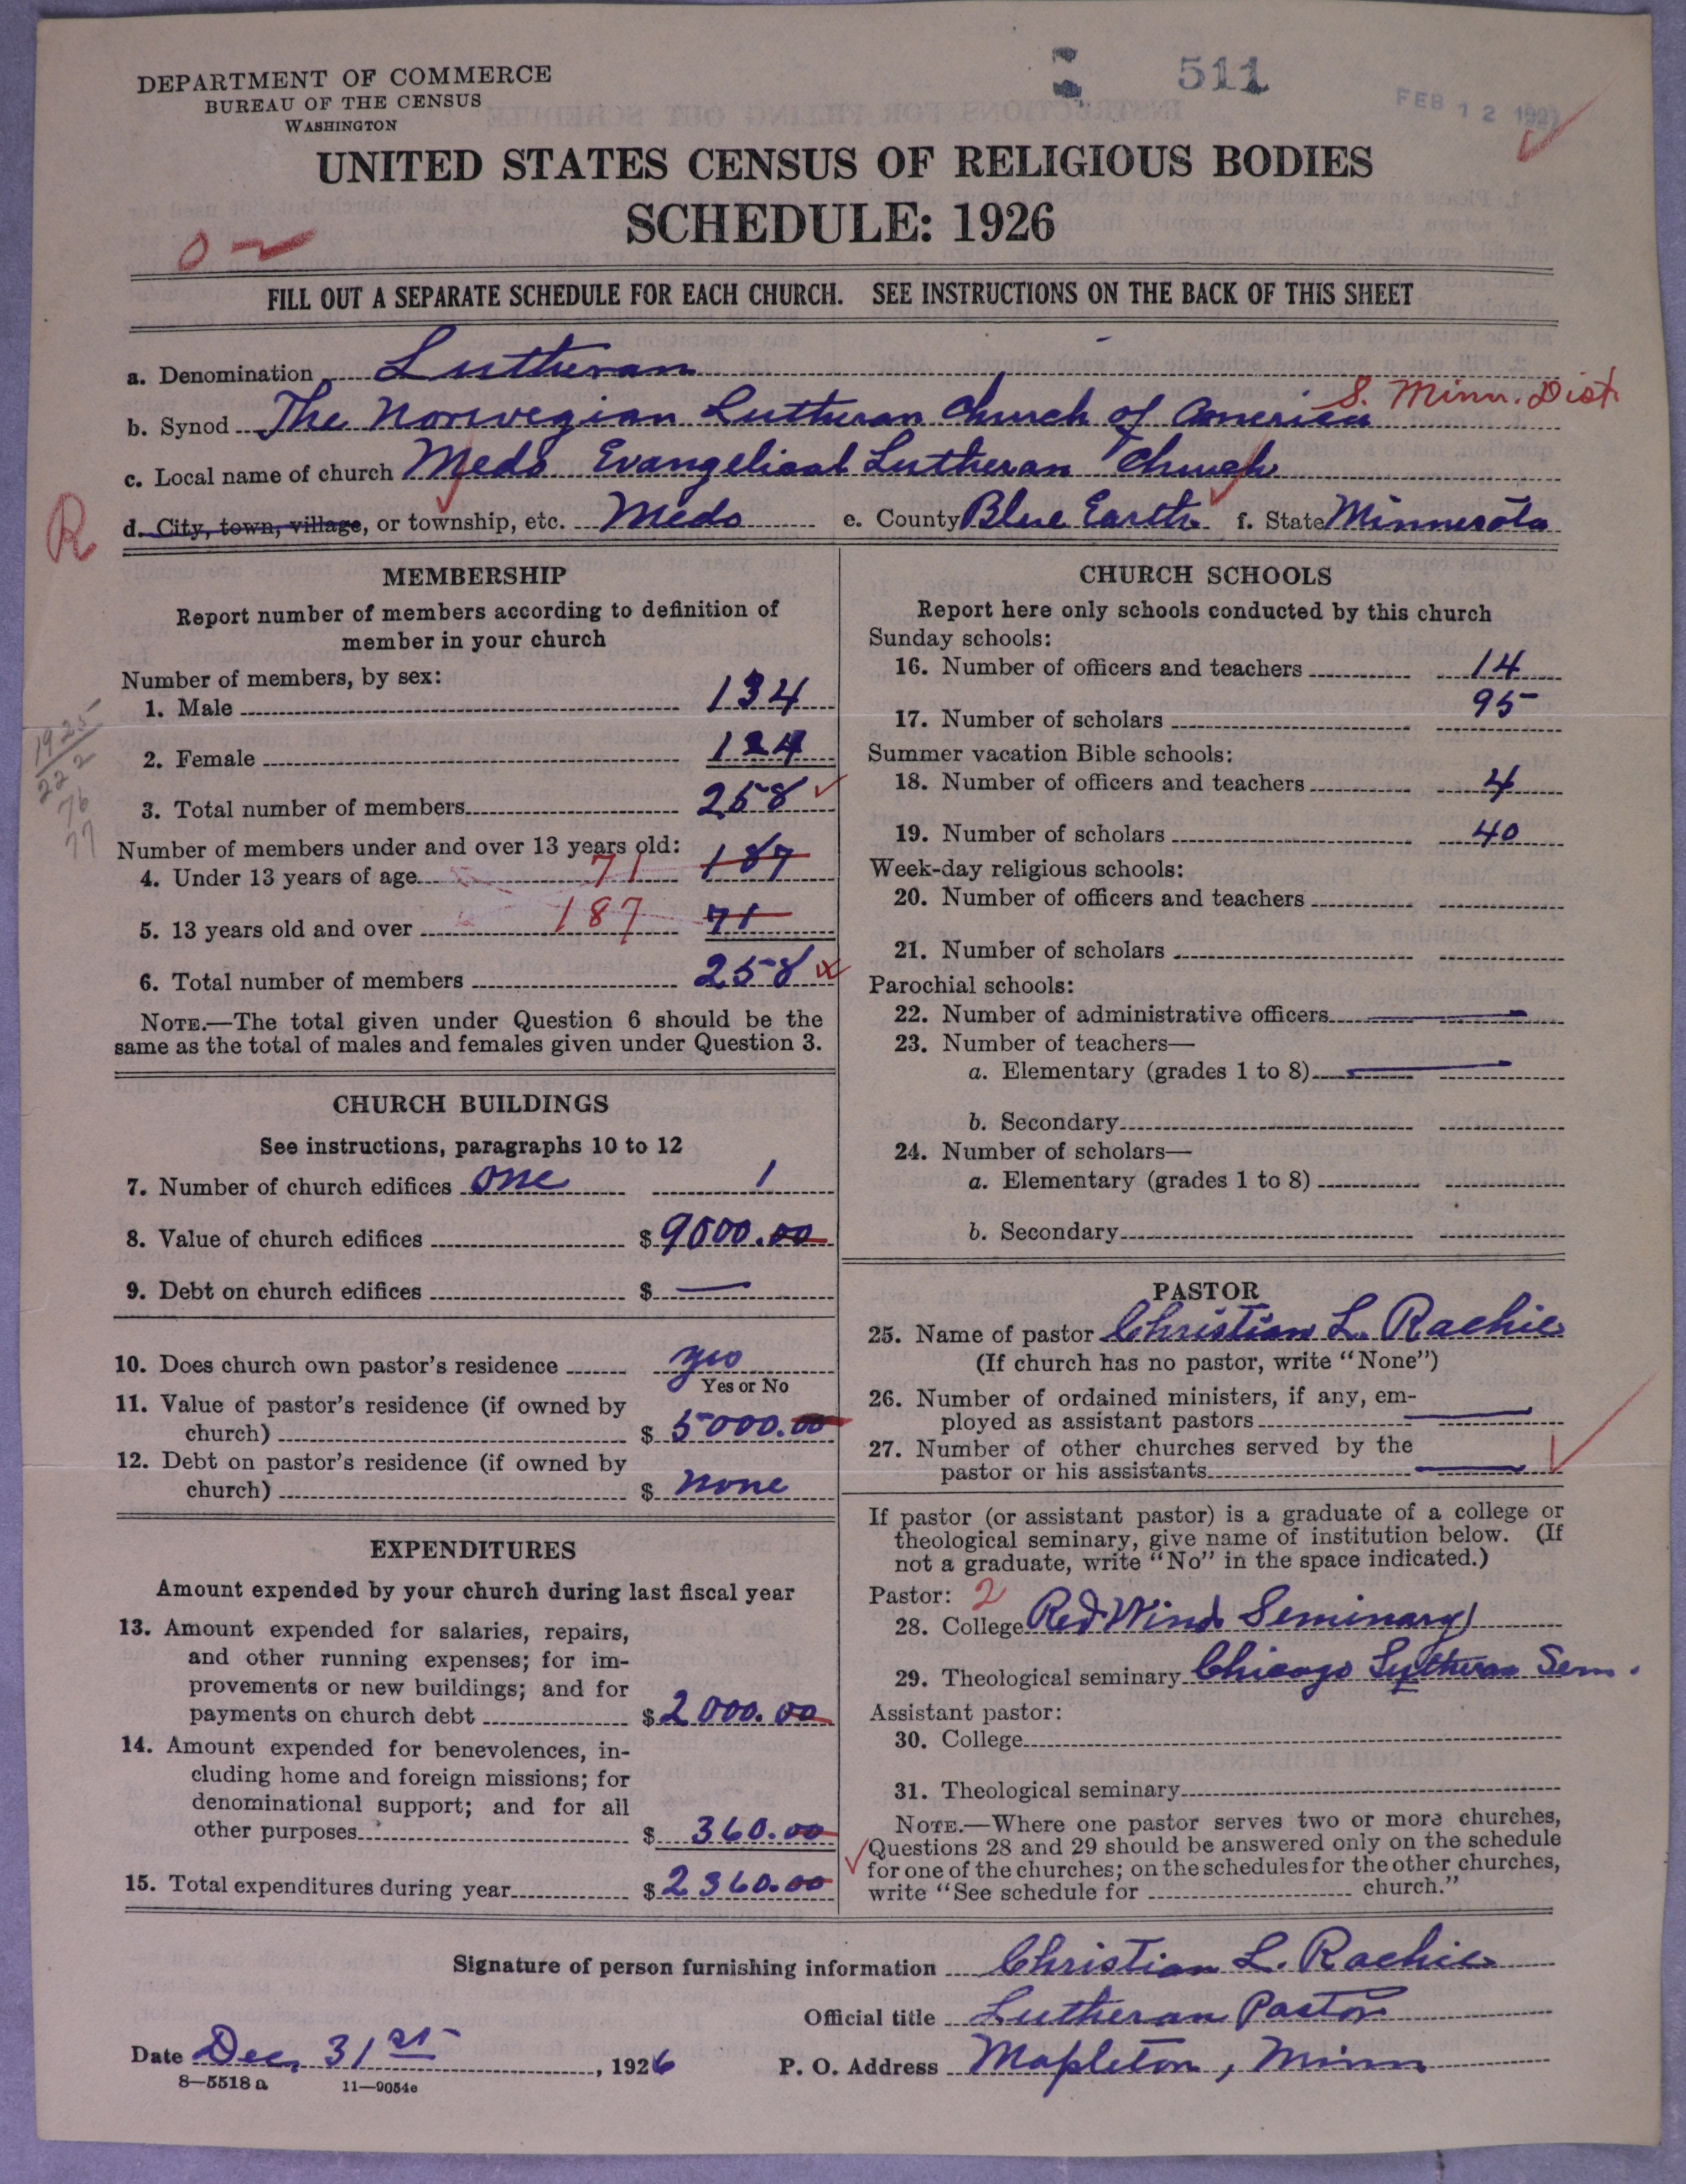 DEPARTMENT OF COMMERCE
BUREAU OF THE CENSUS
WASHINGTON
511
FEB 12 192
UNITED STATES CENSUS OF RELIGIOUS BODIES
SCHEDULE: 1926
FILL OUT A SEPARATE SCHEDULE FOR EACH CHURCH. SEE INSTRUCTIONS ON THE BACK OF THIS SHEET
a. Denomination Lutheran
b. Synod The Norwegian Lutheran Church of America S. Minn. Dist
c. Local name of church Medo Evangelical Lutheran Church
R
d. City, town, village, or township, etc. Medo e. County Blue Earth f. State Minnesota
MEMBERSHIP
Report number of members according to definition of
member in your church
Number of members, by sex:
1. Male 134
2. Female 124
3. Total number of members 258
1925
222
76
77
Number of members under and over 13 years old:
4. Under 13 years of age 71 187
5. 13 years old and over 187 71
6. Total number of members 258
NOTE.—The total given under Question 6 should be the
same as the total of males and females given under Question 3.
CHURCH BUILDINGS
See instructions, paragraphs 10 to 12
7. Number of church edifices one 1
8. Value of church edifices $ 9000.00
9. Debt on church edifices $ —
10. Does church own pastor's residence yes
Yes or No
11. Value of pastor's residence (if owned by
church) $ 5000.00
12. Debt on pastor's residence (if owned by
church) $ none
EXPENDITURES
Amount expended by your church during last fiscal year
13. Amount expended for salaries, repairs,
and other running expenses; for im-
provements or new buildings; and for
payments on church debt $ 2000.00
14. Amount expended for benevolences, in-
cluding home and foreign missions; for
denominational support; and for all
other purposes $ 360.00
15. Total expenditures during year $ 2360.00
CHURCH SCHOOLS
Report here only schools conducted by this church
Sunday schools:
16. Number of officers and teachers 14
17. Number of scholars 95
Summer vacation Bible schools:
18. Number of officers and teachers 4
19. Number of scholars 40
Week-day religious schools:
20. Number of officers and teachers
21. Number of scholars
Parochial schools:
22. Number of administrative officers —
23. Number of teachers—
a. Elementary (grades 1 to 8) —
b. Secondary
24. Number of scholars—
a. Elementary (grades 1 to 8)
b. Secondary
PASTOR
25. Name of pastor Christian L. Rachie
(If church has no pastor, write "None")
26. Number of ordained ministers, if any, em-
ployed as assistant pastors —
27. Number of other churches served by the
pastor or his assistants —
If pastor (or assistant pastor) is a graduate of a college or
theological seminary, give name of institution below. (If
not a graduate, write "No" in the space indicated.)
Pastor: 2
28. College Red Wind Seminary
29. Theological seminary Chicago Lutheran Sem.
Assistant pastor:
30. College
31. Theological seminary
NOTE.—Where one pastor serves two or more churches,
Questions 28 and 29 should be answered only on the schedule
for one of the churches; on the schedules for the other churches,
write "See schedule for church."
Signature of person furnishing information Christian L. Rachie
Official title Lutheran Pastor
Date Dec. 31st, 1926 P. O. Address Mapleton, Minn
8—5518 a 11—9054e